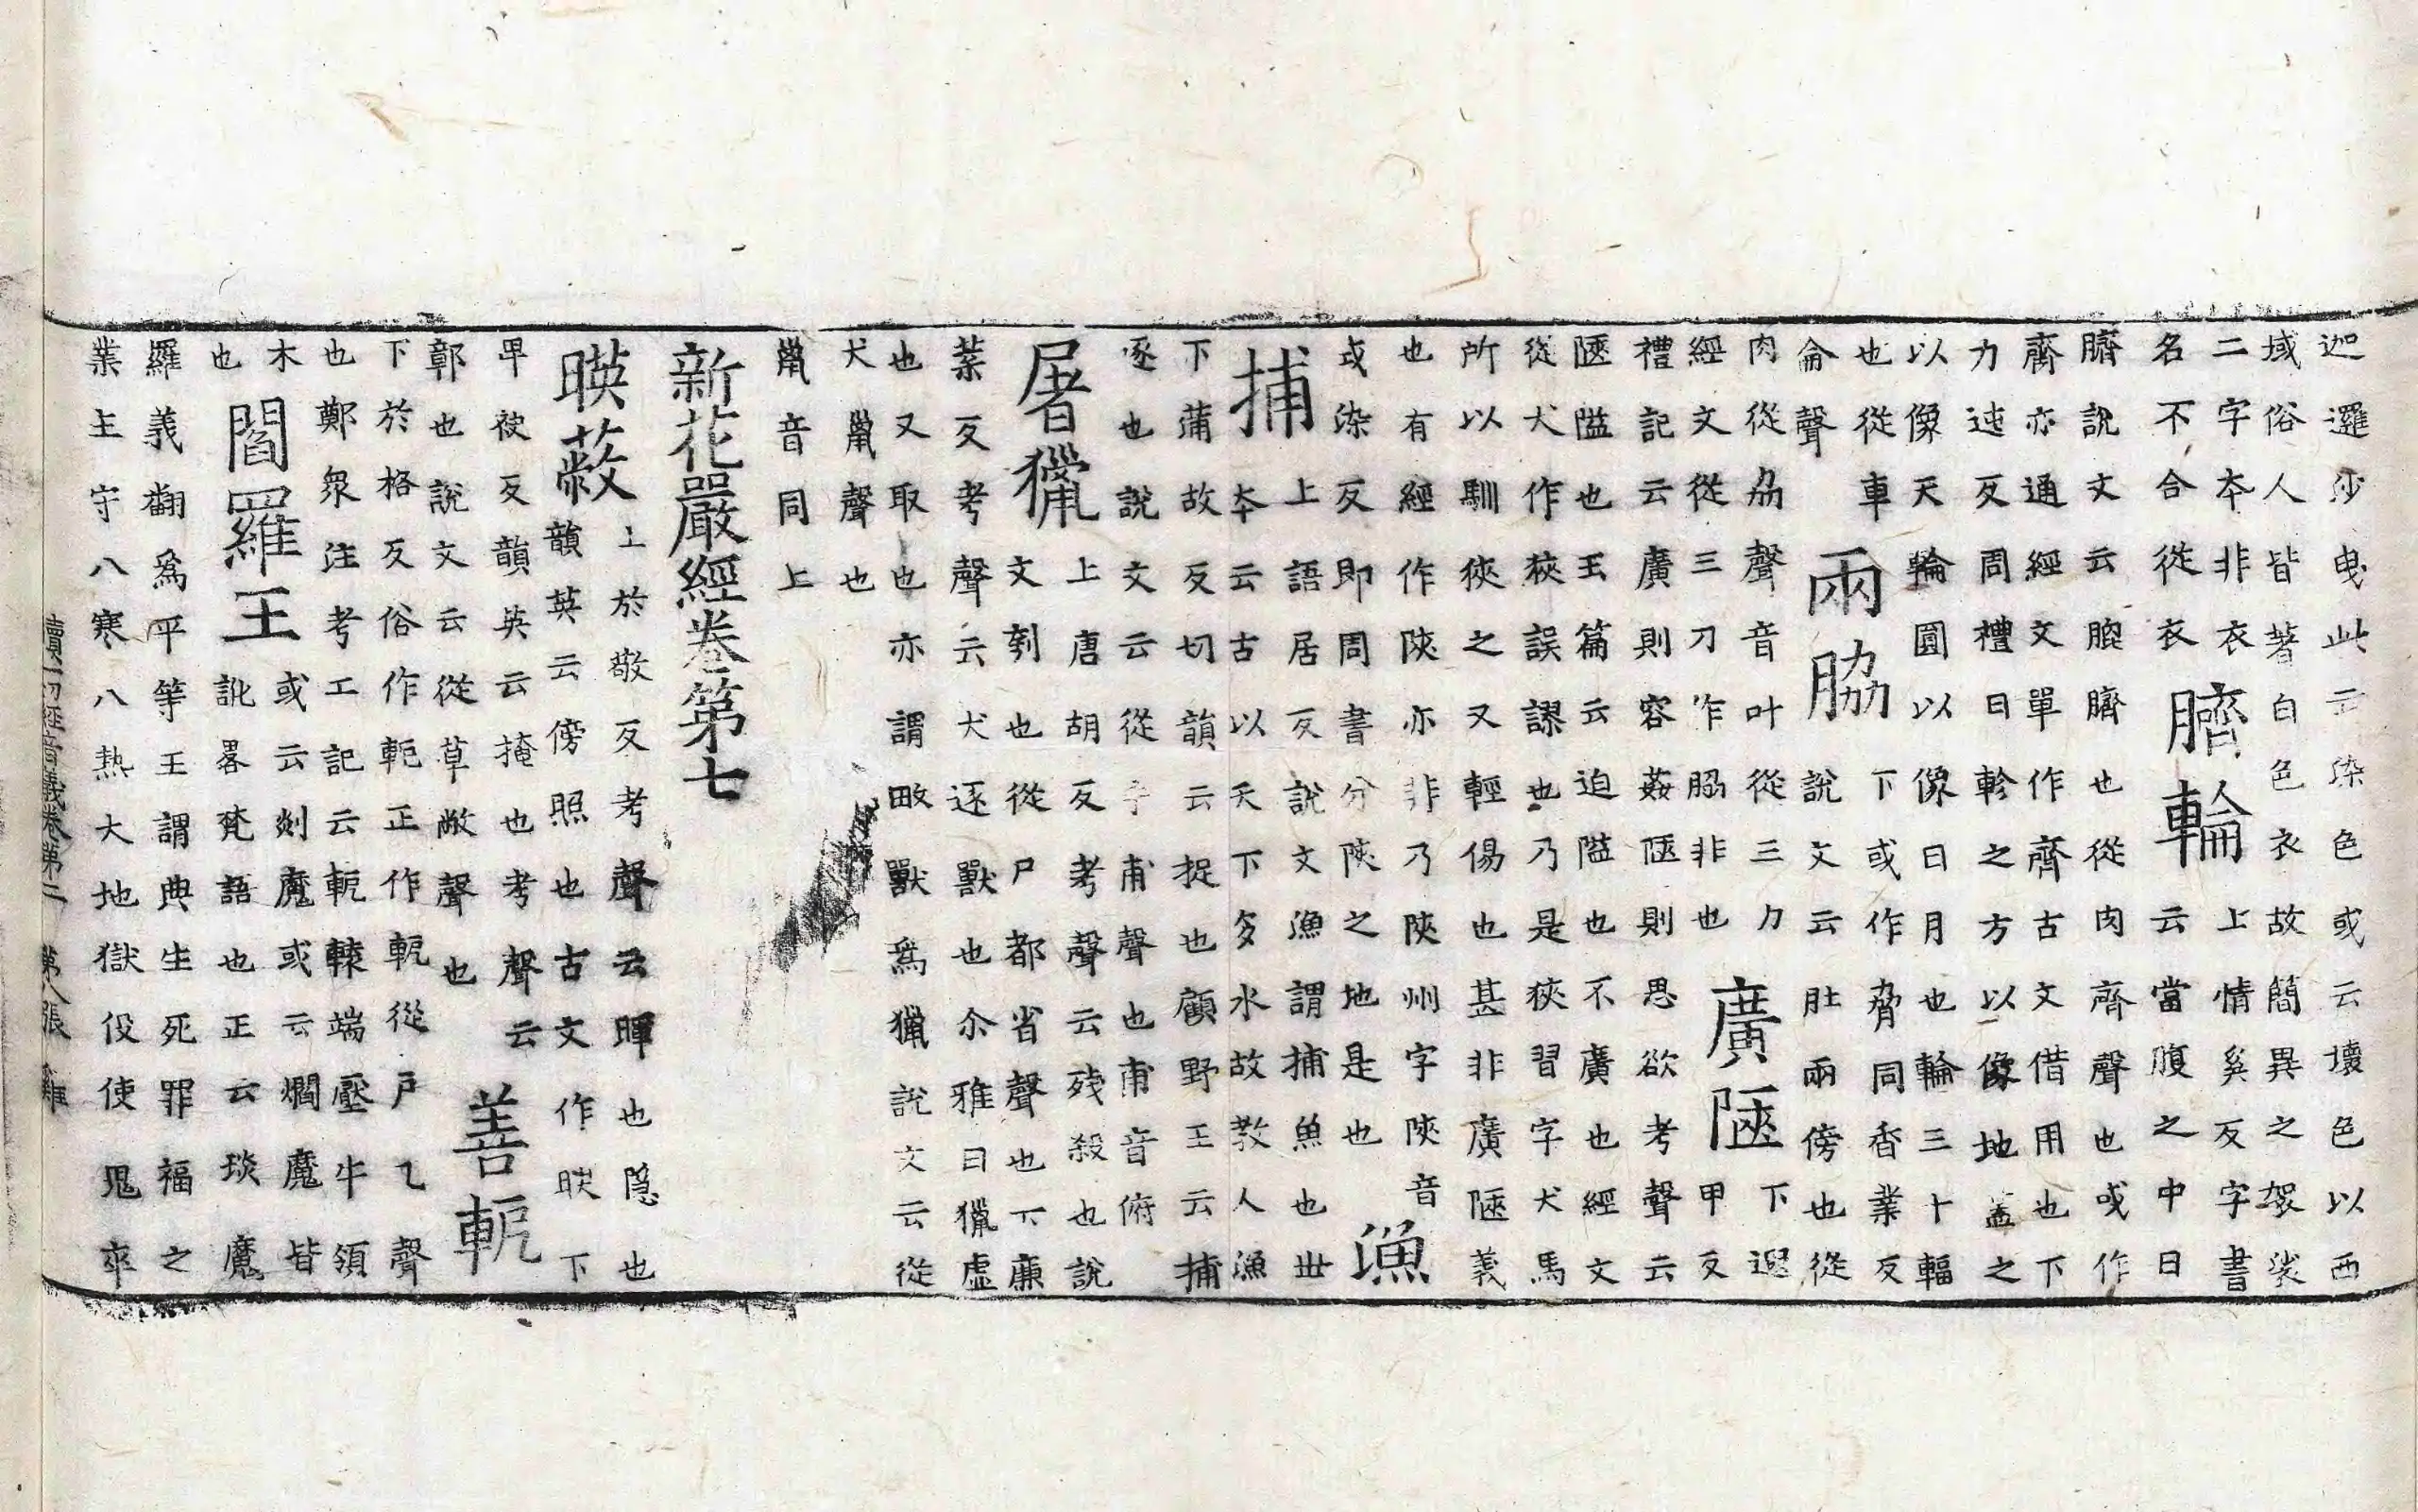 迦邏沙曳此云染色或云壞色以西
域俗人皆著白色衣故簡異之袈裟
二字本非衣
名不合從衣
臍輪
上情奚反字書
云當腹之中曰
臍說文云䐡臍也從肉齊聲也或作
齊亦通經文單作齊古文借用也下
力迍反周禮曰軫之方以像地盖之
以像天輪圓以像日月也輪三十輻
也從車
侖聲
兩脇
下或作脅同香業反
說文云肚兩傍也從
肉從劦聲音叶從三力
經文從三刀作脇非也
廣陿
下遐
甲反
禮記云廣則容姦陿則思欲考聲云
陿隘也玉篇云迫隘也不廣也經文
從犬作狹誤謬也乃是狹習字犬馬
所以馴狹之又輕傷也甚非廣陿義
也有經作陝亦非乃陝州字陝音
或染反即周書分陝之地是也
漁
捕
上語居反說文漁謂捕魚也世
本云古以天下多水故教人漁
下蒲故反切韻云捉也顧野王云捕
逐也說文云從手甫聲也甫音俯
屠獵
上唐胡反考聲云殘殺也說
文刳也從尸都省聲也下廉
葉反考聲云犬逐獸也尒雅曰獵虛
也又取也亦謂畋獸爲獵說文云從
犬巤聲也
巤音同上
新花嚴經卷第七
暎蔽
上於敬反考聲云暉也隐也
韻英云傍照也古文作暎下
卑袂反韻英云掩也考聲云
鄣也說文云從草敝聲也
善軛
下於格反俗作軶正作軛從戶乙聲
也鄭衆注考工記云軛轅端壓牛領
木
也
閻羅王
或云剡魔或云爓魔皆
訛畧梵語也正云琰魔
羅義翻爲平等王謂典生死罪福之
業主守八寒八熱大地獄伇使鬼卒
續一切經音義卷第二 第八張 雞